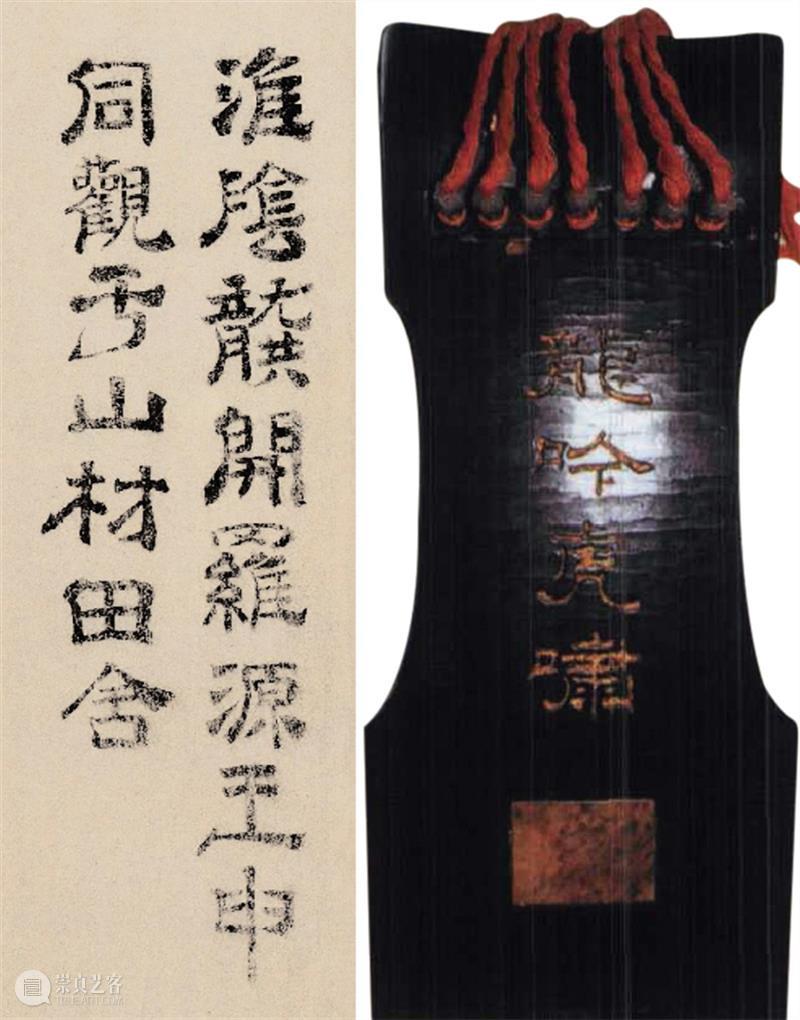 淮陰龔開羅源王申
同觀于山材田舍
龍吟虎嘯
崇真艺客